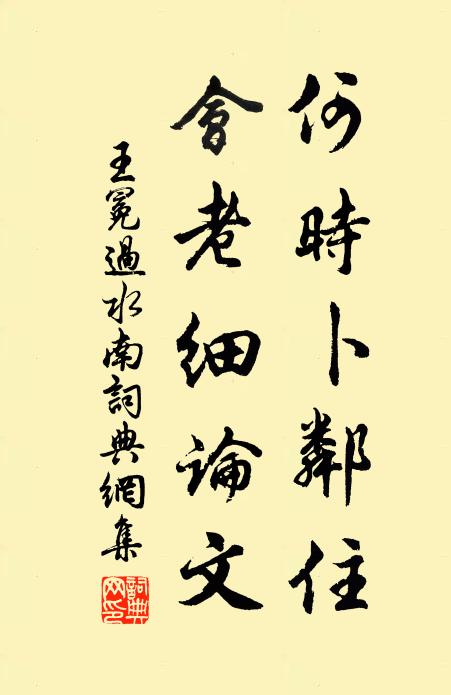 何時卜鄰住
會老細論文
王冕過水南詞典網集
詞典網印